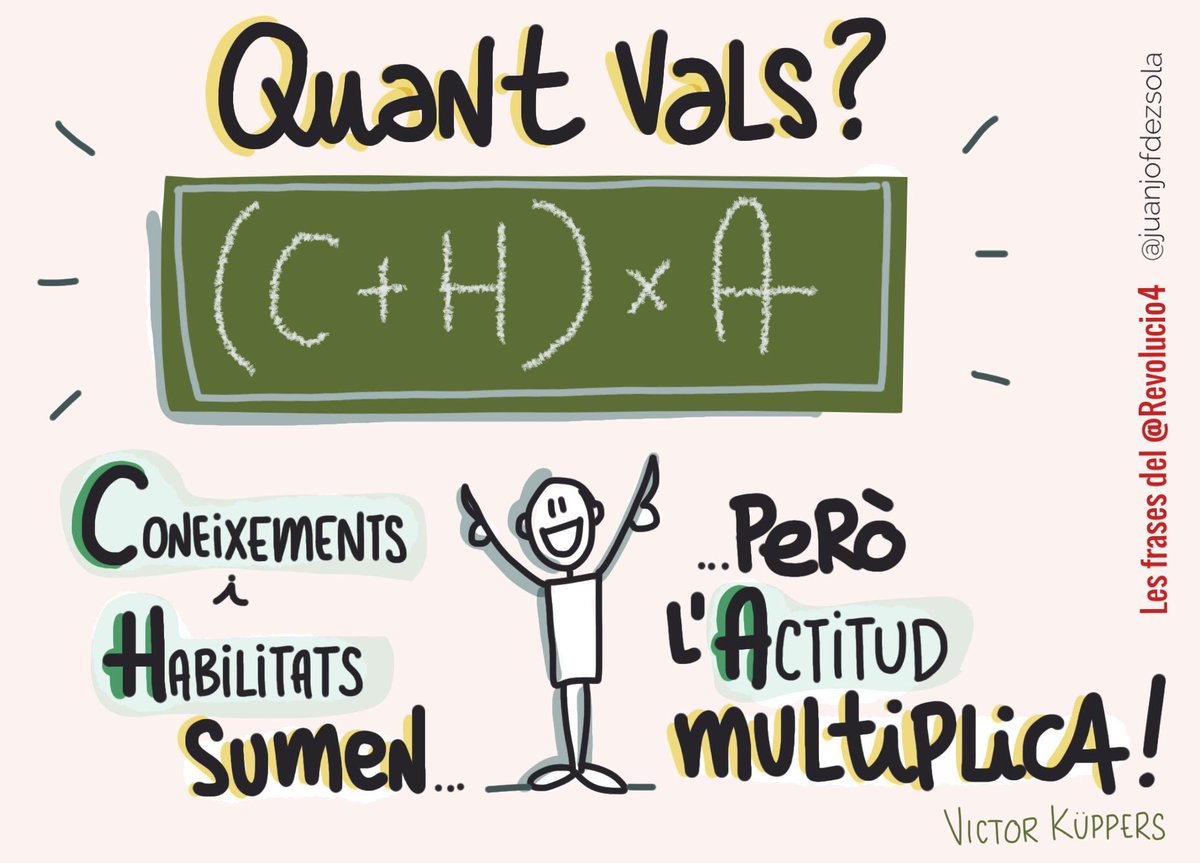 Quant vals?
(C+H)x A
Coneixements
i
Habilitats
sumen...
...però
l'Actitud
multiplica!
Victor Küppers
Les frases del @Revolucio4 @juanjofdezsola